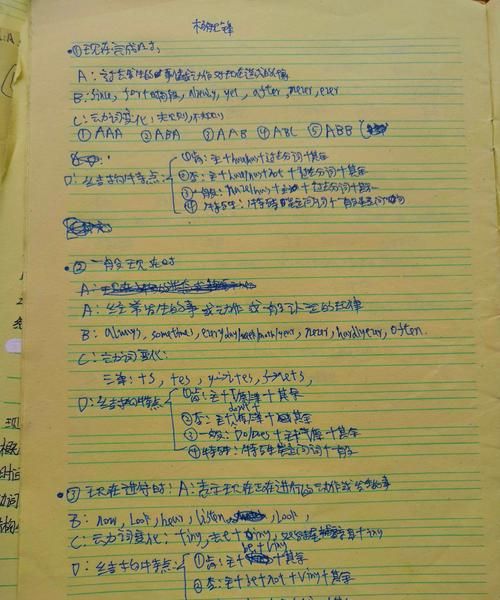 杨 锋
①现在完成时:
A:过去发生的事或动作对现在造成的影响
B:since, for+时间段, already, yet, after, never, ever
C:动词变化:规则,不规则
①AAA ②ABA ③AAB ④ABC ⑤ABB
D:结构特点:
①肯:主+have/has+过去分词+其余
②否:主+have/has+not+过去分词+其余
③一般:have/has+主+过去分词+其余
④特殊:特殊疑问词+一般疑问句
②一般现在时
A:经常发生的事或动作或有 的规律
B:always, sometimes, every day/week/month/year, never, hardly ever, often.
C:动词变化:
三单:+s, +es, y→i+es,
D:结构特点
①肯:主+V原/三单+其余
don't+
②否:主+V原 +其余
③一般:Do/Does+主+V原+其余
④特殊:特殊疑问词+一般
③现在进行时:A:表示现在正在进行的动作或发生的事
B:now, Look, hear, listen, Look,
C:动词变化:+ing, 去e+ing, +ing
D:结构特点:
be+Ving
①肯:主+ +其余
②否:主+be+not+Ving+其余